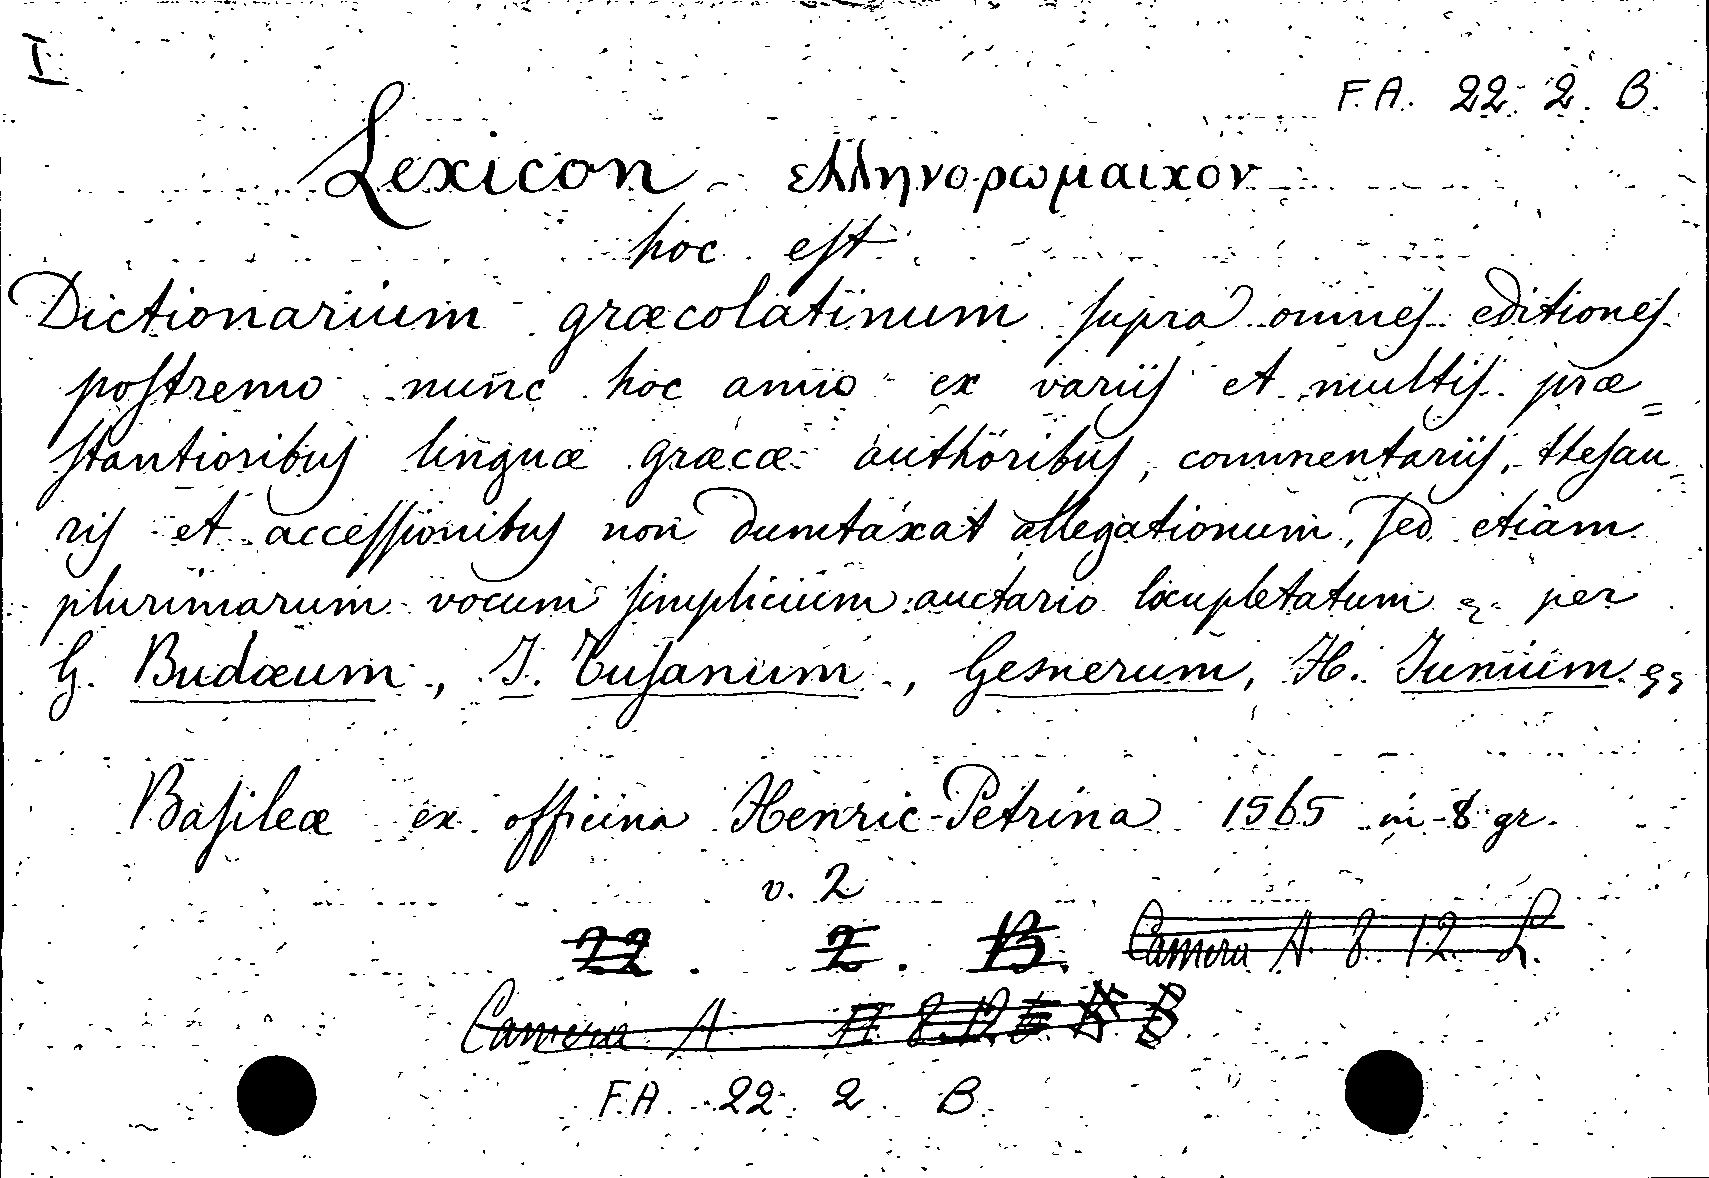 I
F.A. 22. 2. B.
Lexicon ελληνορωμαιχον
hoc eſt
Dictionarium græcolatinum ſupra omneſ editioneſ
poſtremo nunc hoc anno ex variiſ et multiſ præ=
ſtantioribuſ linguæ græcæ authöribuſ, commentariiſ, theſau
riſ et acceſſionibuſ non dumtaxat allegationum, ſed etiam
plurimarum vocum ſimplicium auctario locupletatum &. per
G. Budæum, J. Tuſanum, Gesnerum, H. Junium &&
Baſileæ ex officina Henric-Petrina 1565 in-8 gr.
v. 2
22. 2. B. Camera A. 8. 12. L.
Camera A 8.12.
F.A. 22. 2 B.